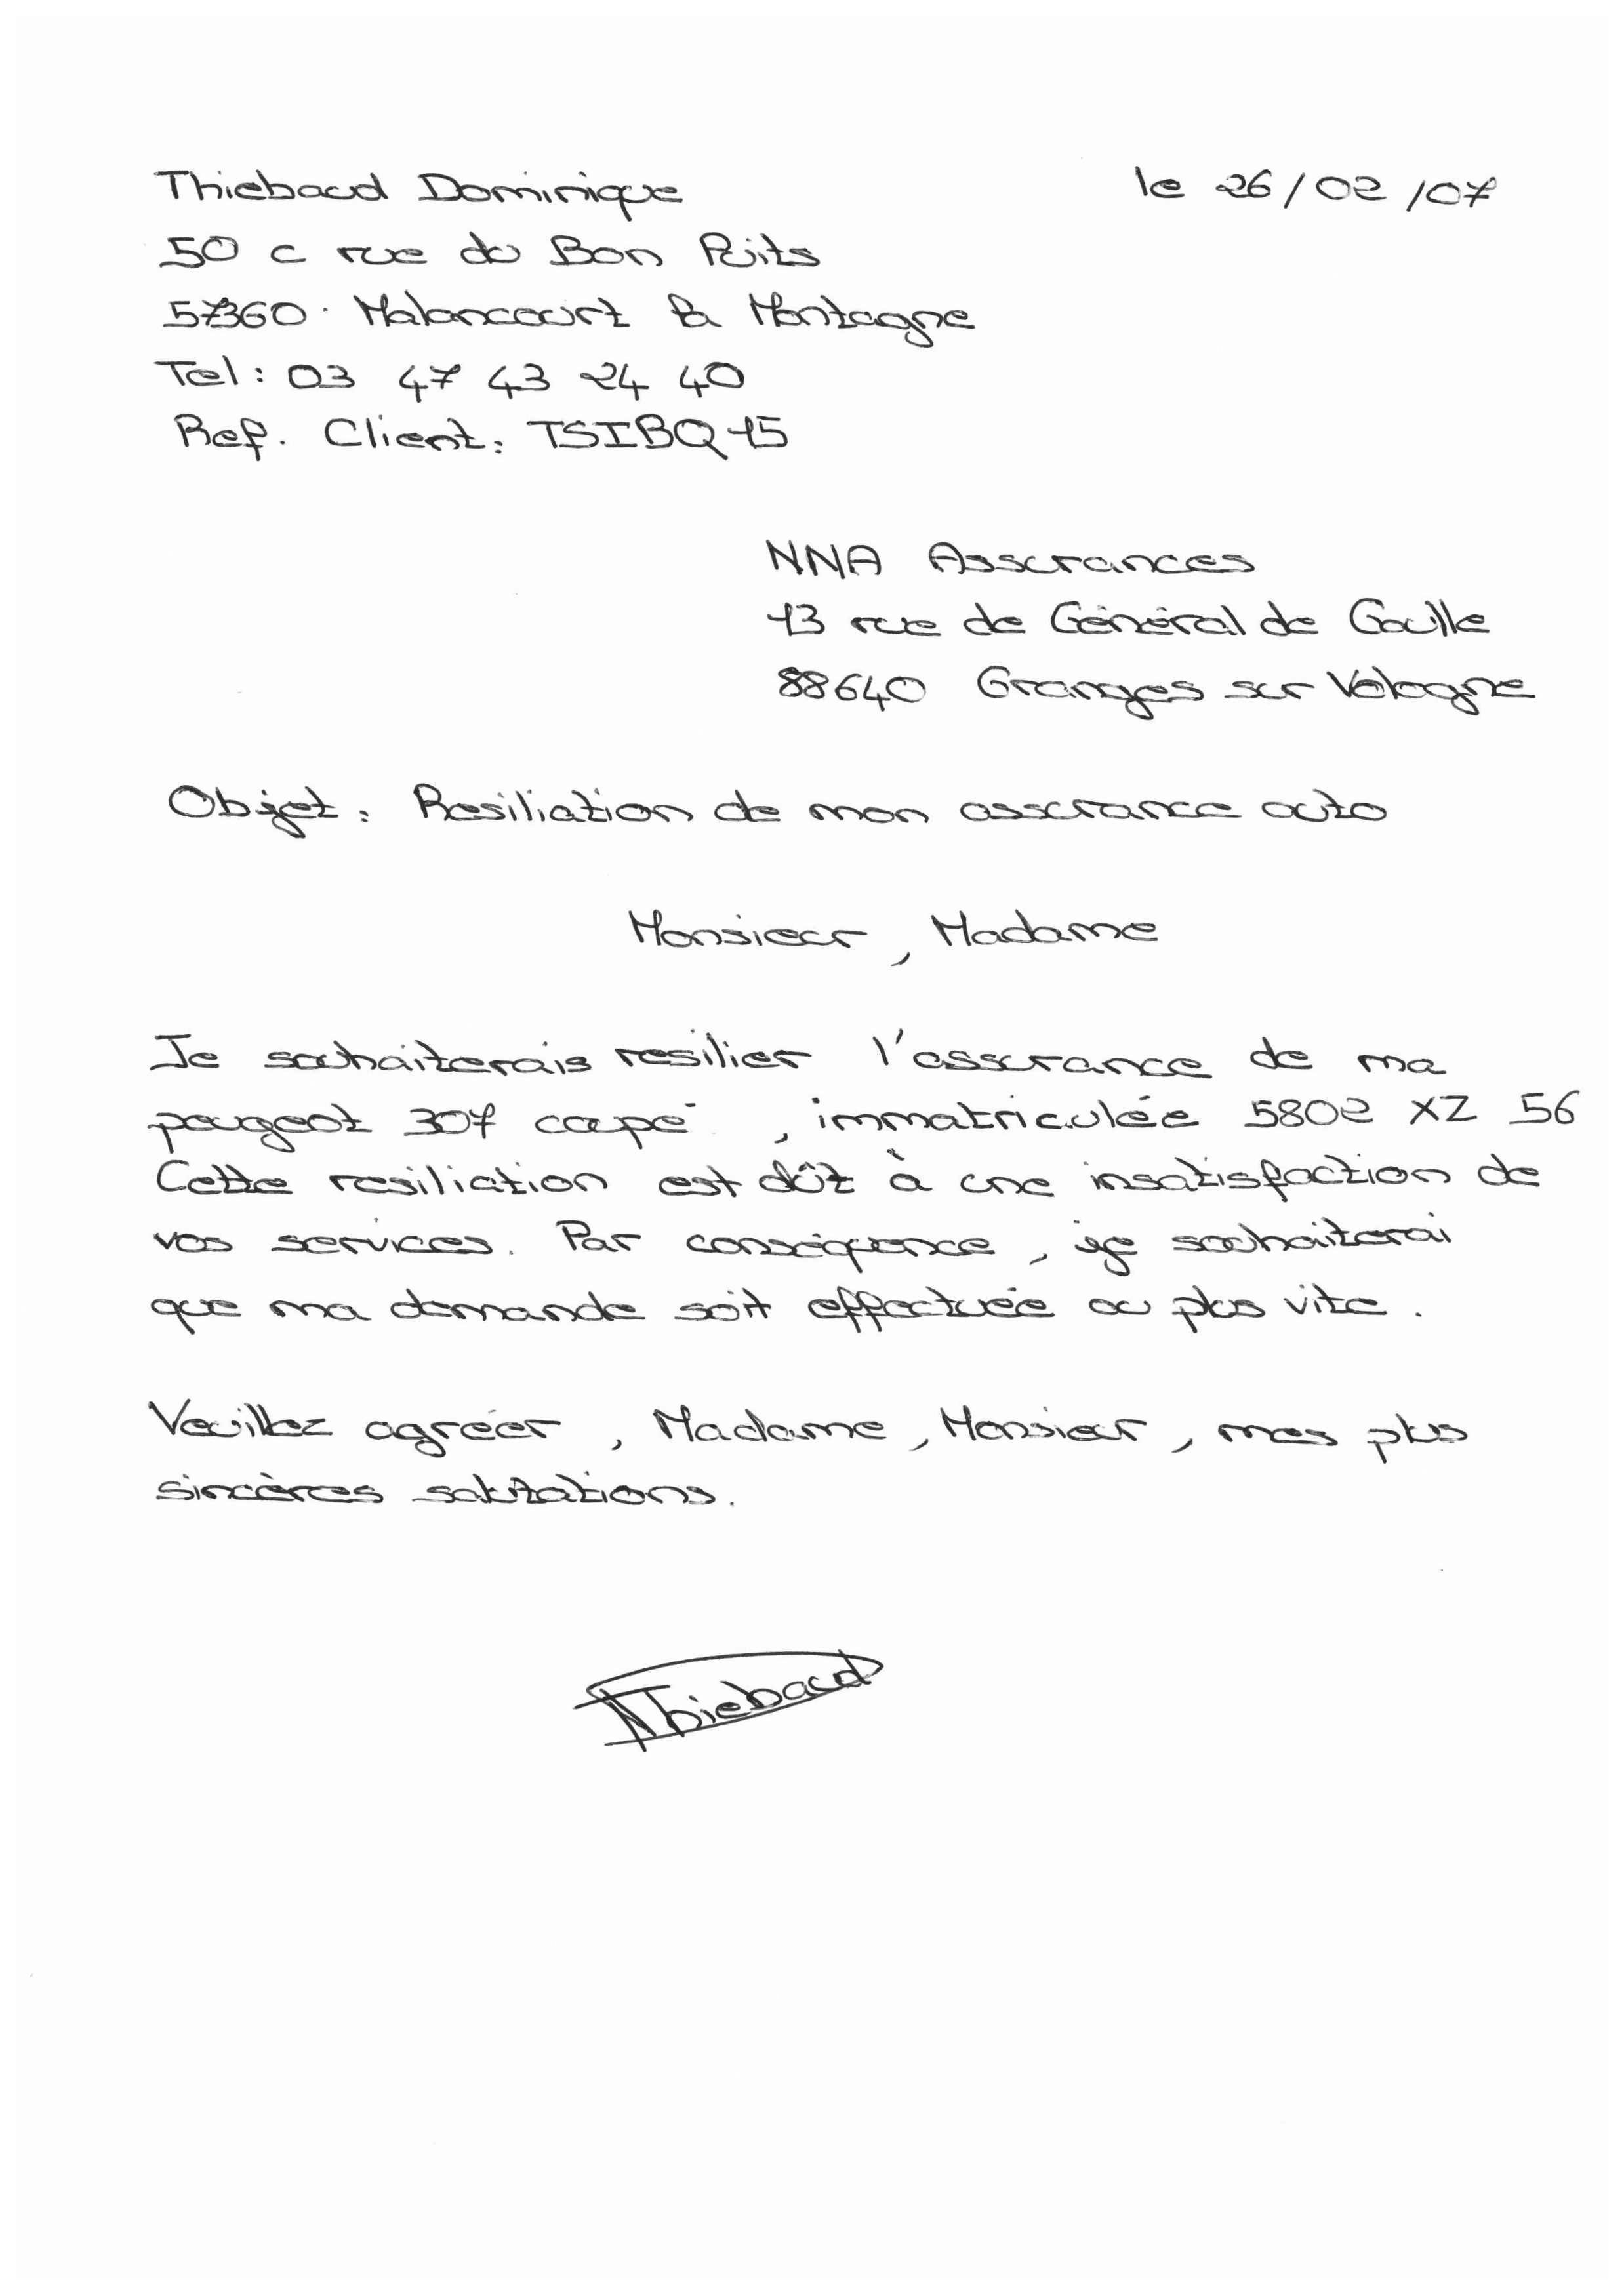 Thiebaud Dominique
le 26/02/07
50 c rue du Bon Puits
57360 Malancourt la Montagne
Tel : 03 47 43 24 40
Ref. Client : TSIBQ15
NNA Assurances
13 rue de Général de Gaulle
88640 Granges sur Vologne
Objet : Resiliation de mon assurance auto
Monsieur, Madame
Je souhaiterais resilier l'assurance de ma
peugeot 307 coupé, immatriculée 5802 XZ 56
Cette resiliation est dût à une insatisfaction de
vos services. Par conséquence, je souhaiterai
que ma demande soit effectuée au plus vite.
Veuillez agréer, Madame, Monsieur, mes plus
sincères salutations.
Thiebaud